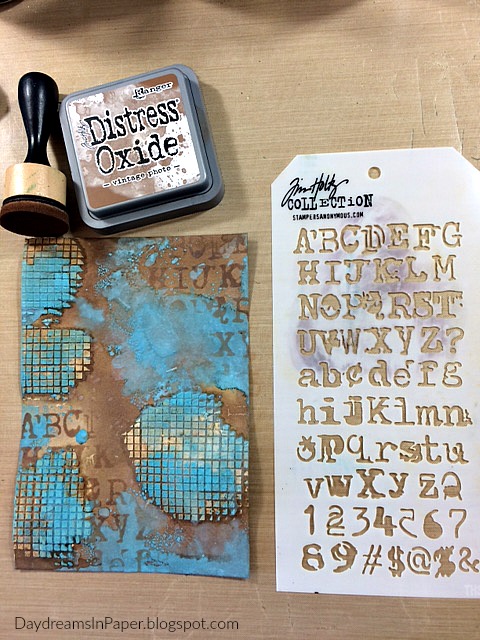 Ranger
Tim Holtz
Distress
Oxide
— vintage photo —
Tim Holtz
COLLECTION
STAMPERSANONYMOUS.COM
ABCDEFG
HIJKLM
NOPQRST
UVWXYZ?
abcdefg
hijklmn
opqrstu
vwxyz
1234567
89#$@%&
HIJK
ABCD
DaydreamsInPaper.blogspot.com